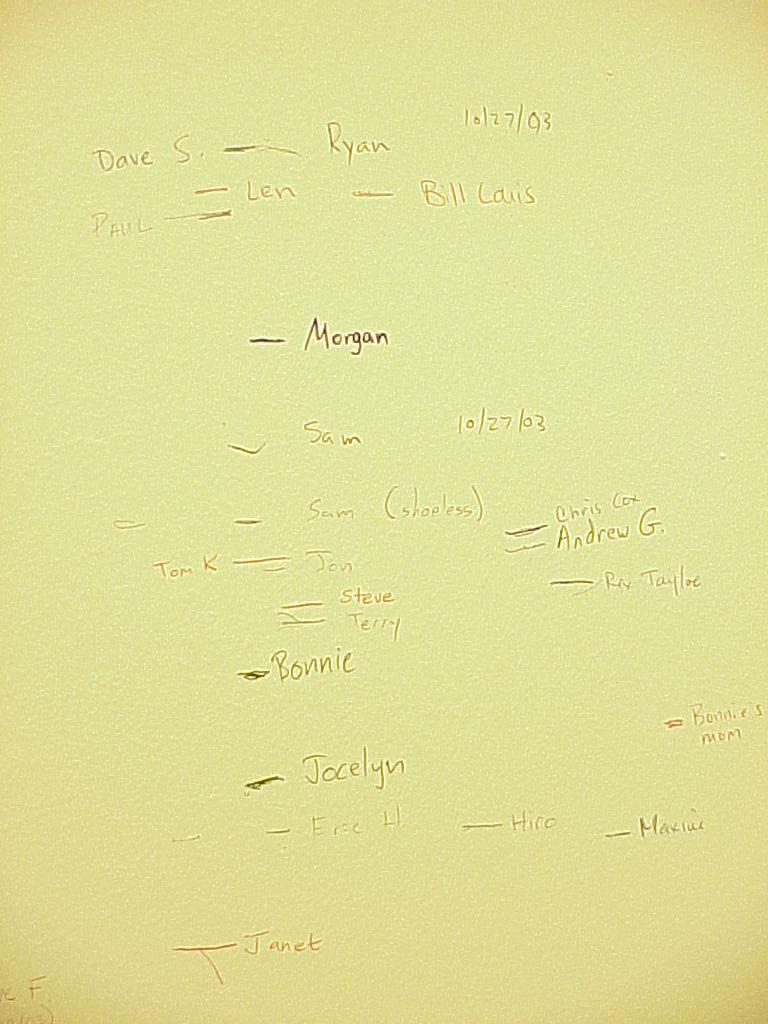 10/27/03
Dave S. Ryan
Len Bill Louis
PAUL
Morgan
Sam 10/27/03
Sam (shoeless) Chris Cox
Andrew G.
Tom K Jon Rix Tayloe
Steve
Terry
Bonnie
Bonnie's
mom
Jocelyn
Eric H. Hiro Maxine
Janet
F